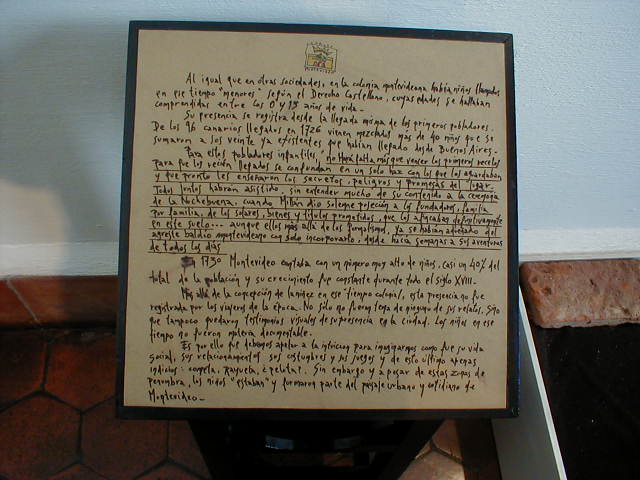 Al igual que en otras sociedades, en la colonia montevideana había niños llamados
en ese tiempo "menores" según el Derecho Castellano, cuyas edades se hallaban
comprendidas entre los 0 y 13 años de vida.-
Su presencia se registra desde la llegada misma de los primeros pobladores.
De los 96 canarios llegados en 1726 vienen mezclados mas de 40 niños que se
sumaron a los veinte ya existentes que habían llegado desde Buenos Aires.-
Para estos pobladores infantiles, no hará falta más que vencer los primeros recelos
para que los recién llegados se confundan en un solo haz con los que los aguardaban
y que pronto les enseñaron los secretos, peligros y promesas del lugar.
Todos juntos habrán asistido, sin entender mucho de su contenido a la ceremonia
de la Nochebuena, cuando Millán dio solemne posesión a los fundadores, familia
por familia, de los solares, bienes y títulos prometidos, que los afincaba definitivamente
en este suelo... aunque ellos más allá de los formalismos, ya se habían adueñado del
agreste baldío montevideano con solo incorporarlo, desde hacía semanas a sus aventuras
de todos los días
1730 Montevideo contaba con un número muy alto de niños. Casi un 40% del
total de la población y su crecimiento fue constante durante todo el siglo XVIII.-
Más allá de la concepción de la niñez en ese tiempo colonial, esta presencia no fue
registrada por los viajeros de la época. No sólo no fueron tema de ninguno de sus relatos, sino
que tampoco quedaron testimonios visuales de su presencia en la ciudad. Los niños en ese
tiempo no fueron materia documentable.
Es por ello que debemos apelar a la intuición para imaginarnos como fue su vida
social, sus relacionamientos sus costumbres y sus juegos y de esto último apenas
indicios: cometa, Rayuela, ¿pelota?. Sin embargo y a pesar de estas zonas de
penumbra, los niños "estaban" y formaron parte del paisaje urbano y cotidiano de
Montevideo.-